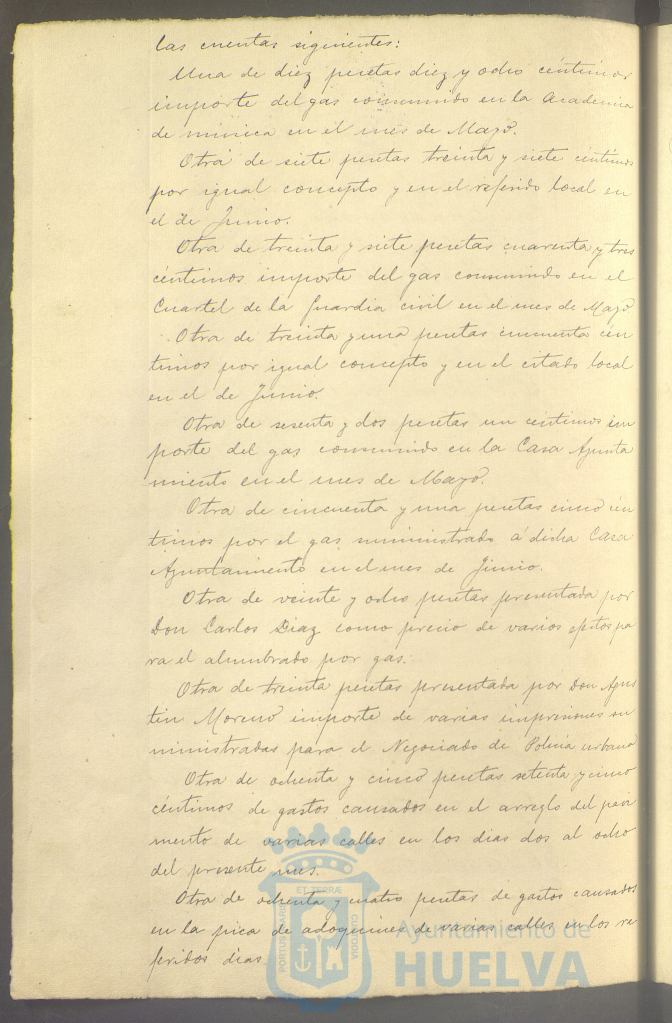 las cuentas siguientes:
Una de diez pesetas diez y ocho centimos
importe del gas consumido en la Academia
de música en el mes de Mayo.
Otra de siete pesetas treinta y siete céntimos
por igual concepto y en el referido local en
el de Junio.
Otra de treinta y siete pesetas cuarenta y tres
céntimos importe del gas consumido en el
Cuartel de la Guardia civil en el mes de Mayo
Otra de treinta y una pesetas cincuenta cén
timos por igual concepto y en el citado local
en el de Junio.
Otra de sesenta y dos pesetas un centimos im
porte del gas consumido en la Casa Ayunta
miento en el mes de Mayo.
Otra de cincuenta y una pesetas cinco cén
timos por el gas suministrado á dicha Casa
Ayuntamiento en el mes de Junio.
Otra de veinte y ocho pesetas presentada por
Don Carlos Diaz como precio de varios efectos pa
ra el alumbrado por gas.
Otra de treinta pesetas presentada por Don Agus
tin Moreno importe de varias impresiones su
ministradas para el Negociado de Policia urbana
Otra de ochenta y cinco pesetas setenta y cinco
céntimos de gastos causados en el arreglo del pavi
mento de varias calles en los dias dos al ocho
del presente mes.
Otra de ochenta y cuatro pesetas de gastos causados
en la pica de adoquines de varias calles en los re
feridos dias
PORTUS MARIS ET TERRÆ CUSTODIA
Ayuntamiento de
HUELVA